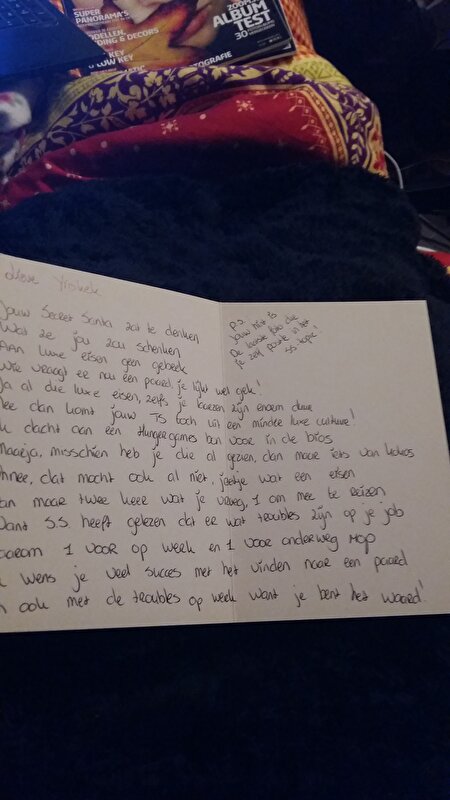 SUPER
PANORAMA'S
ODELLEN,
DING & DECORS
KEY
& LOW KEY
OGRAFIE
ZOOM
ALBUM
TEST
30
Lieve
Jouw Secret Santa zat te denken
Wat ze jou zou schenken
Aan luxe eisen geen gebrek
Wie vraagt er nou een paard, je lijkt wel gek!
Ja al die luxe eisen, zelfs je kaarzen zijn enorm duur
nee dan komt jouw SS toch uit een minder luxe cultuur!
k dacht aan een Hungergames bon voor in de bios
Maarja, misschien heb je die al gezien, dan maar iets van kokos
hnee, dat mocht ook al niet, jeetje wat een eisen
an maar twee keer wat je vroeg, 1 om mee te reizen
Want S.S heeft gelezen dat er wat troubles zijn op je job
aarom 1 voor op werk en 1 voor onderweg Hop
k wens je veel succes met het vinden naar een paard
n ook met de troubles op werk want je bent het waard!
P.S.
jouw hint is
De laatste foto die
je zelf poste in het
SS topic!